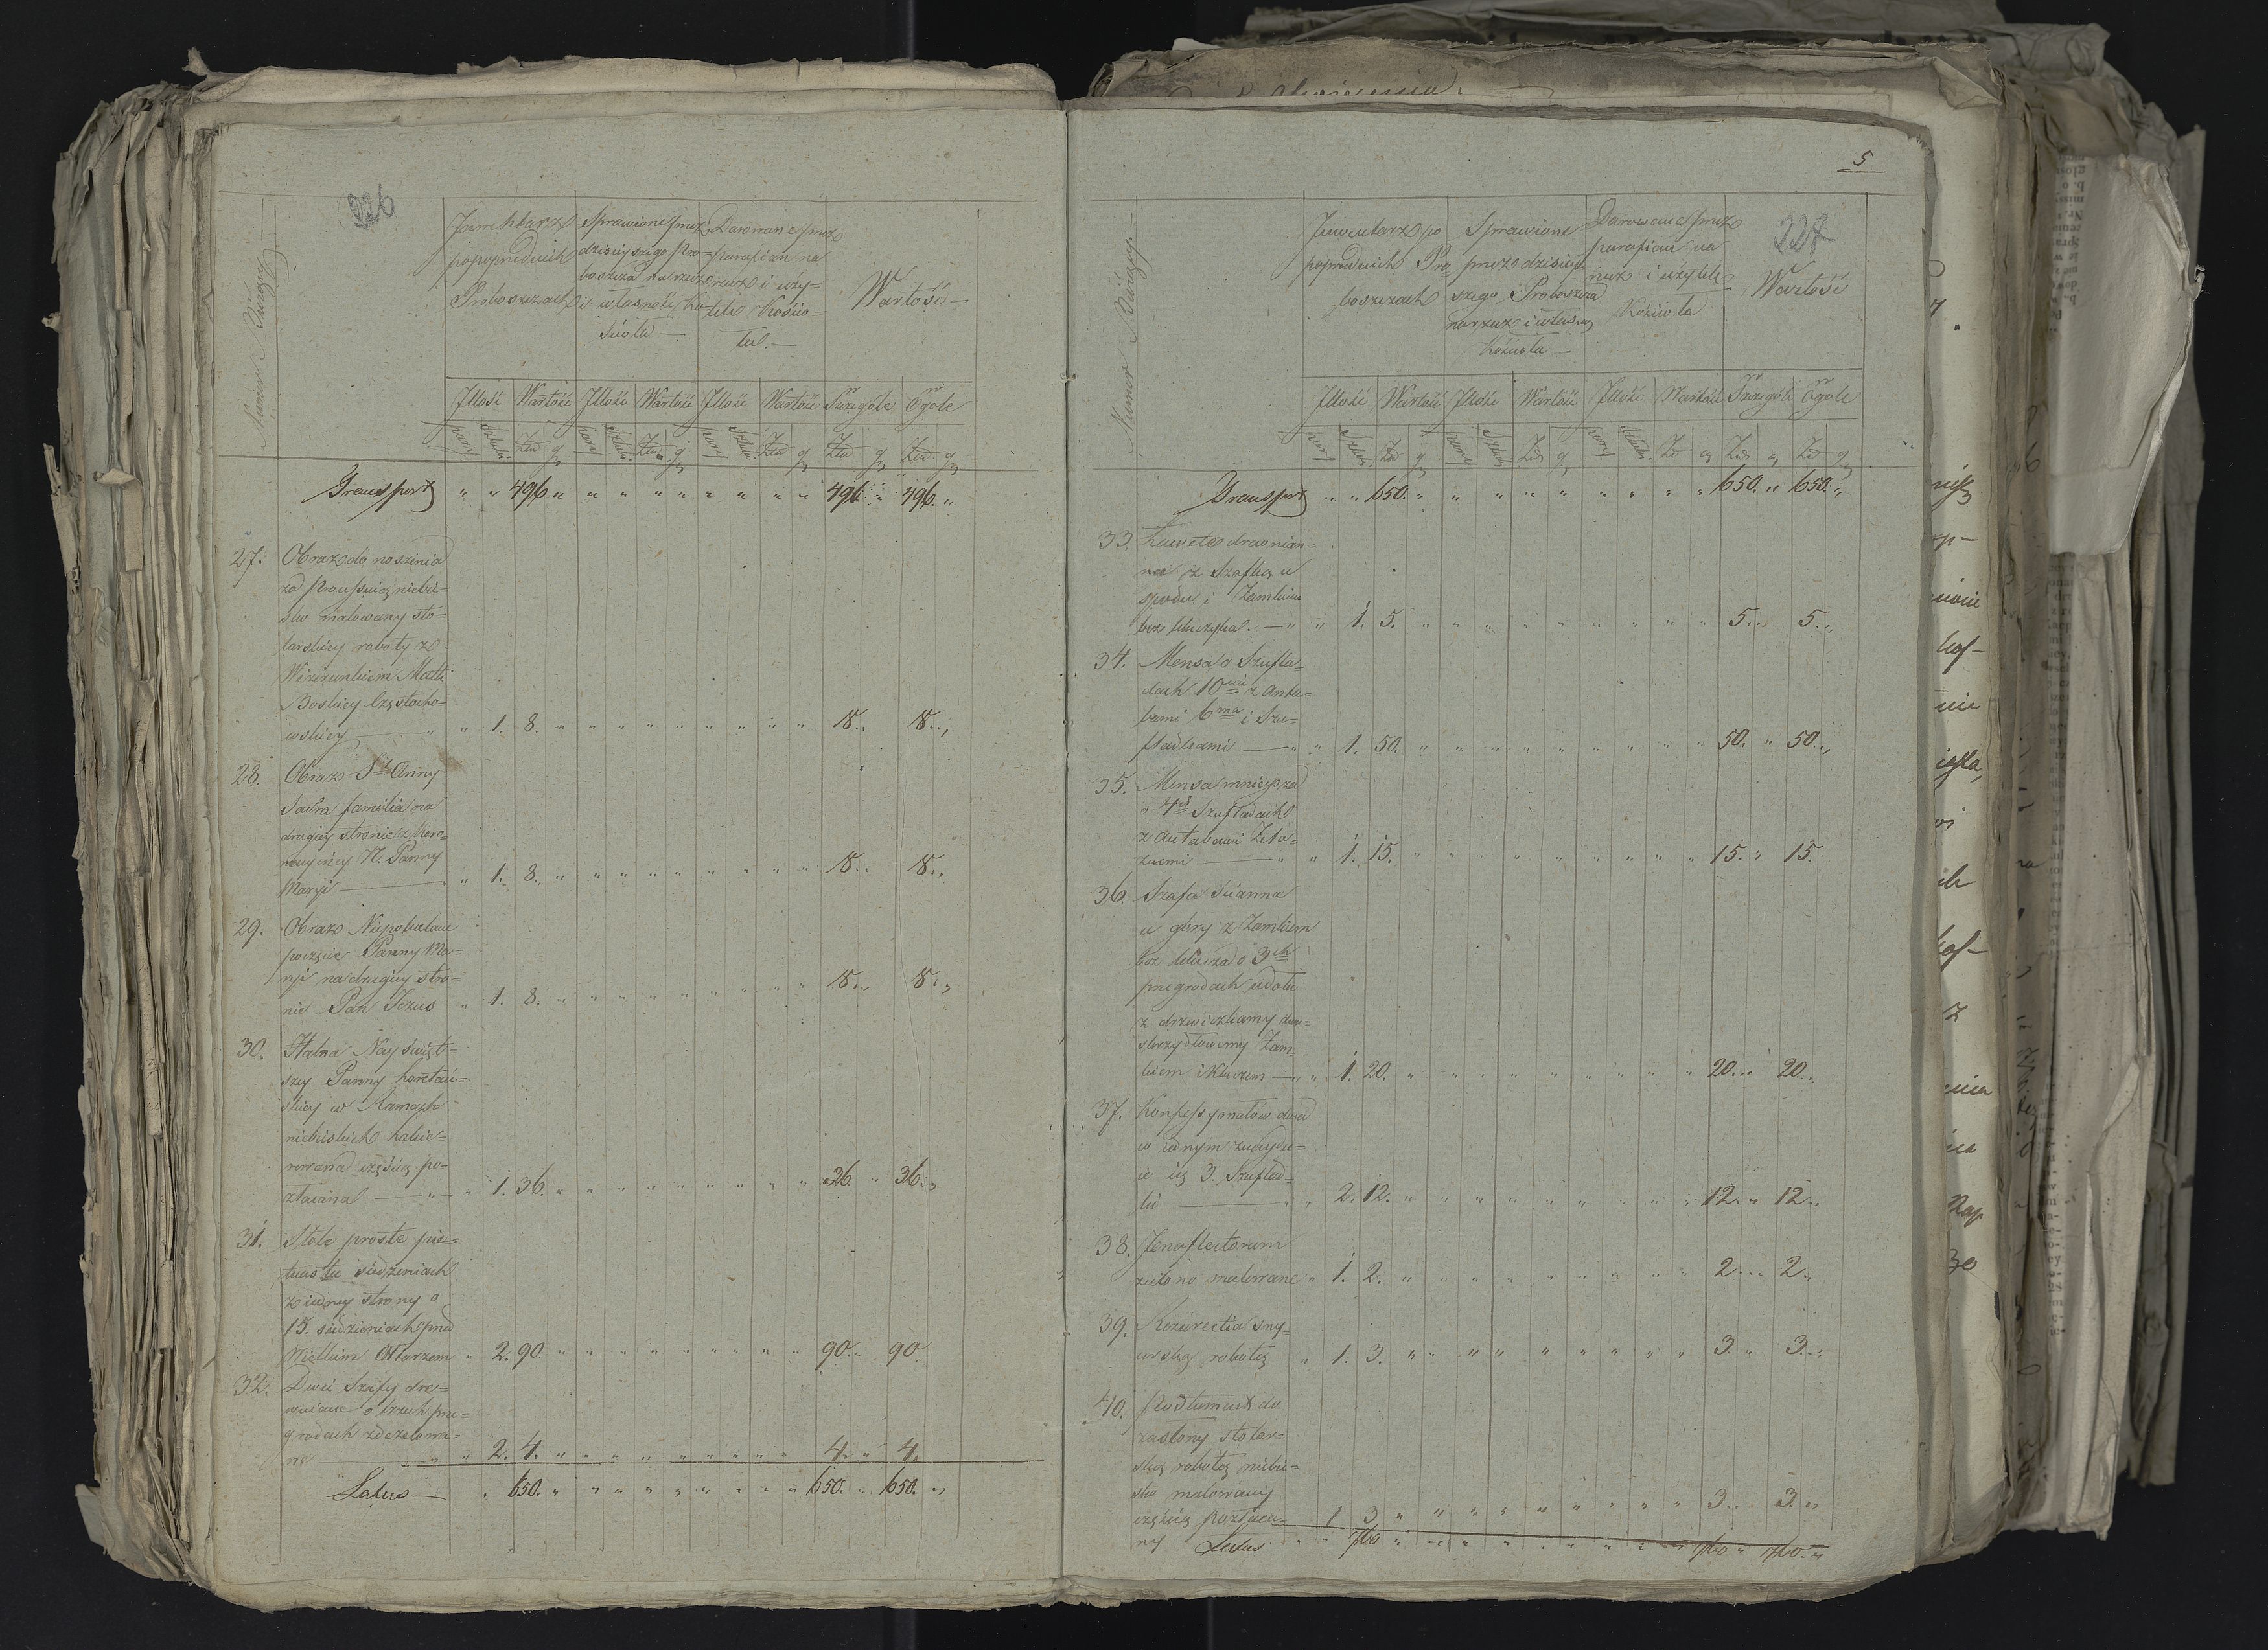 226
Numer Bieżący
Inwentarz
popoprzednich
Proboszczach
Sprawione przez
dzisiejszego Pro=
boszcza na rzecz
i własność Ko=
ścioła —
Darowane przez
parafian na
rzecz i uży=
tek Kościo=
ła. —
Wartość —
Illość Wartość Illość Wartość Illość Wartość Szczególe Ogóle
pary Sztuki Złu gr pary Sztuki Złu gr pary Sztuki Złu gr Złu gr Złu gr
Transport " " 496 " " " " " " " " " 496 " 496. "
27. Obraz do noszenia
za Processią niebie=
sko malowany sto=
larskiey roboty z
Wizerunkiem Matki
Boskiey Częstocho=
wskiey — " " 1. 8. " " " " " " " " " 18. " 18. "
28. Obraz S. Anny
Sacra familia na
drugiey stronie z Koro=
nacyiney N. Panny
Maryi — " 1. 8. " " " " " " " " " 18. " 18. "
29. Obraz Niepokalane
poczęcie Panny Ma=
ryi na drugiey stro=
nie Pan Jezus " 1. 8. " " " " " " " " " 18. " 18. "
30. Statua Nayświęt=
szey Panny Loretań=
skiey w Ramach
niebieskich lakie=
rowana częścią po=
złacana — " " 1. 36. " " " " " " " " " 36. " 36. "
31. Stele proste pie=
tnastu siedzeniach
z iedney strony o
15. siedzeniach przed
Wielkim Ołtarzem " 2. 90. " " " " " " " " " 90. " 90.
32. Dwie Szafy dre=
wniane o trzech prze=
grodach zdezelowa=
ne — " " 2. 4. " " " " " " " " " 4. " 4.
Latus — " 650. " " " " " " " " " 650. " 650. "
5
227
Numer Bieżący —
Inwentarz po
poprzednich Pro
boszczach
Sprawione
przez dzisiey
szego Proboszcza
na rzecz i własność
Kościoła —
Darowane przez
parafian na
rzecz i użytek
Kościoła
Wartość
Illość Wartość Illość Wartość Illość Wartość Szczególe Ogóle
pary Sztuki Zł gr pary Sztuki Zł gr pary Sztuki Zł gr Zł gr Zł gr
Transport " " 650. " " " " " " " " " 650. " 650. "
33. Lawete drewnian=
na z Szafką u
spodu i Zamkiem
bez kluczyka. — " " 1. 5. " " " " " " " " " 5. " 5. "
34. Mensa o Szufla=
dach 10ciu z anta=
bami 6ma i Szu=
fladkami — " " 1. 50. " " " " " " " " " 50. " 50. "
35. Mensa mnieysza
o 4ch Szufladach
z antabami Żela=
znemi — " " 1. 15. " " " " " " " " " 15. " 15.
36. Szafa ścianna
u góry z Zamkiem
bez klucza o 3ch
przegrodach u dołu
z drzwiczkamy dwu=
skrzydłowemy Zam=
kiem i Kluczem — " " 1. 20. " " " " " " " " " 20. " 20. "
37. Konfessyonałów dwa
w iednym znaydu=
ie się 3. Szuflad=
ki — " " 2. 12. " " " " " " " " " 12. " 12. "
38. Jenoflectorium
zielono malowane " 1. 2. " " " " " " " " " 2. " 2. "
39. Rezurectia sny=
cerską robotą " 1. 3. " " " " " " " " " 3. " 3. "
40. Postument do
zasłony stolar=
ską robotą niebie=
sko malowany
częścią pozłaca= 1 3 " " " " " " " " " 3. " 3. "
ny Latus " " 760 " " " " " " " " " 760 " 760. "